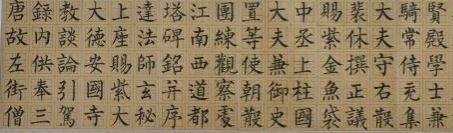 唐故左街僧
錄內供奉三
教談論引駕
大德安國寺
上座賜紫大
達法師玄秘
塔碑銘并序
江南西道都
團練觀察處
置等使朝散
大夫兼御史
中丞上柱國
賜紫金魚袋
裴休撰正議
大夫守右散
騎常侍充集
賢殿學士兼